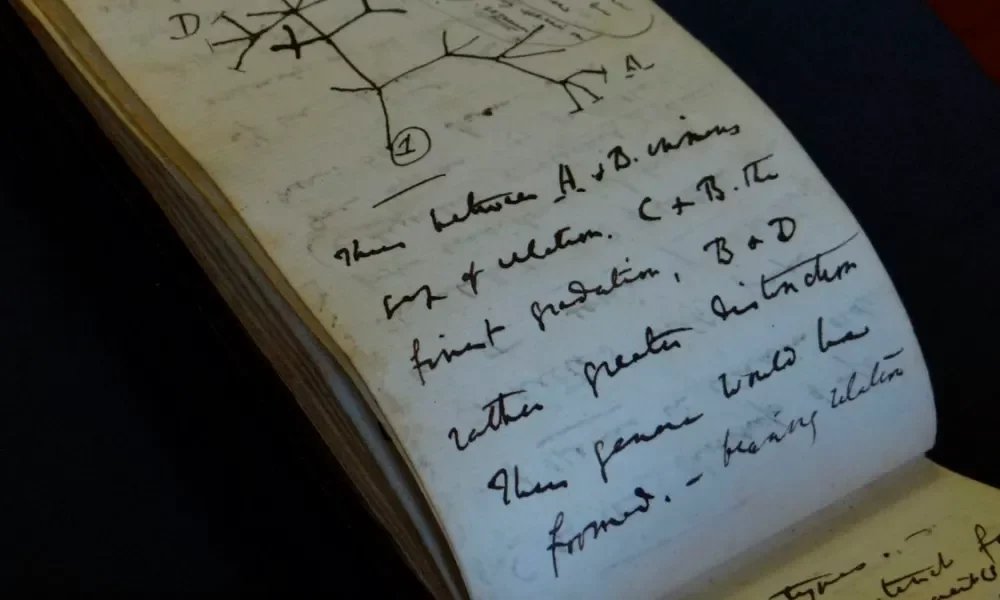 D
A
1
Thus between A & B. immens
gap of relation. C & B. The
finest gradation, B & D
rather greater distinction
Thus genera would be
formed. — bearing relation
types